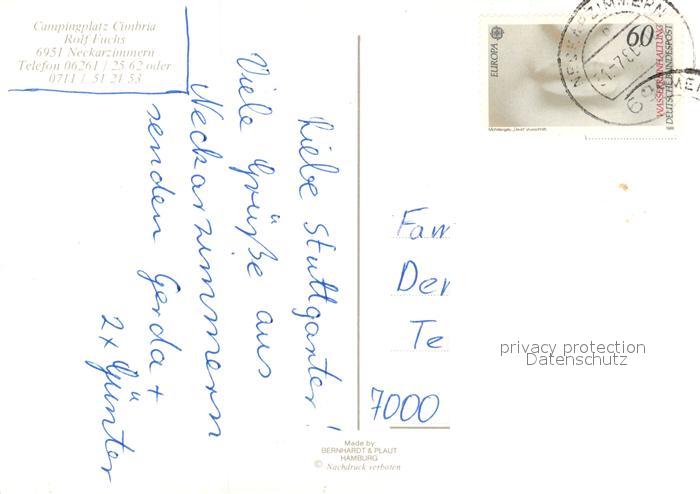 Campingplatz Cimbria
Rolf Fuchs
6951 Neckarzimmern
Telefon 06261 / 25 62 oder
0711 / 51 21 53
Liebe Stuttgarter!
Viele Grüße aus
Neckarzimmern
senden Gerda +
2x Günter
EUROPA
60
WASSERREINHALTUNG
DEUTSCHE BUNDESPOST
NECKARZIMMERN
Fam
Der
Te
7000
privacy protection
Datenschutz
Made by:
BERNHARDT & PLAUT
HAMBURG
© Nachdruck verboten